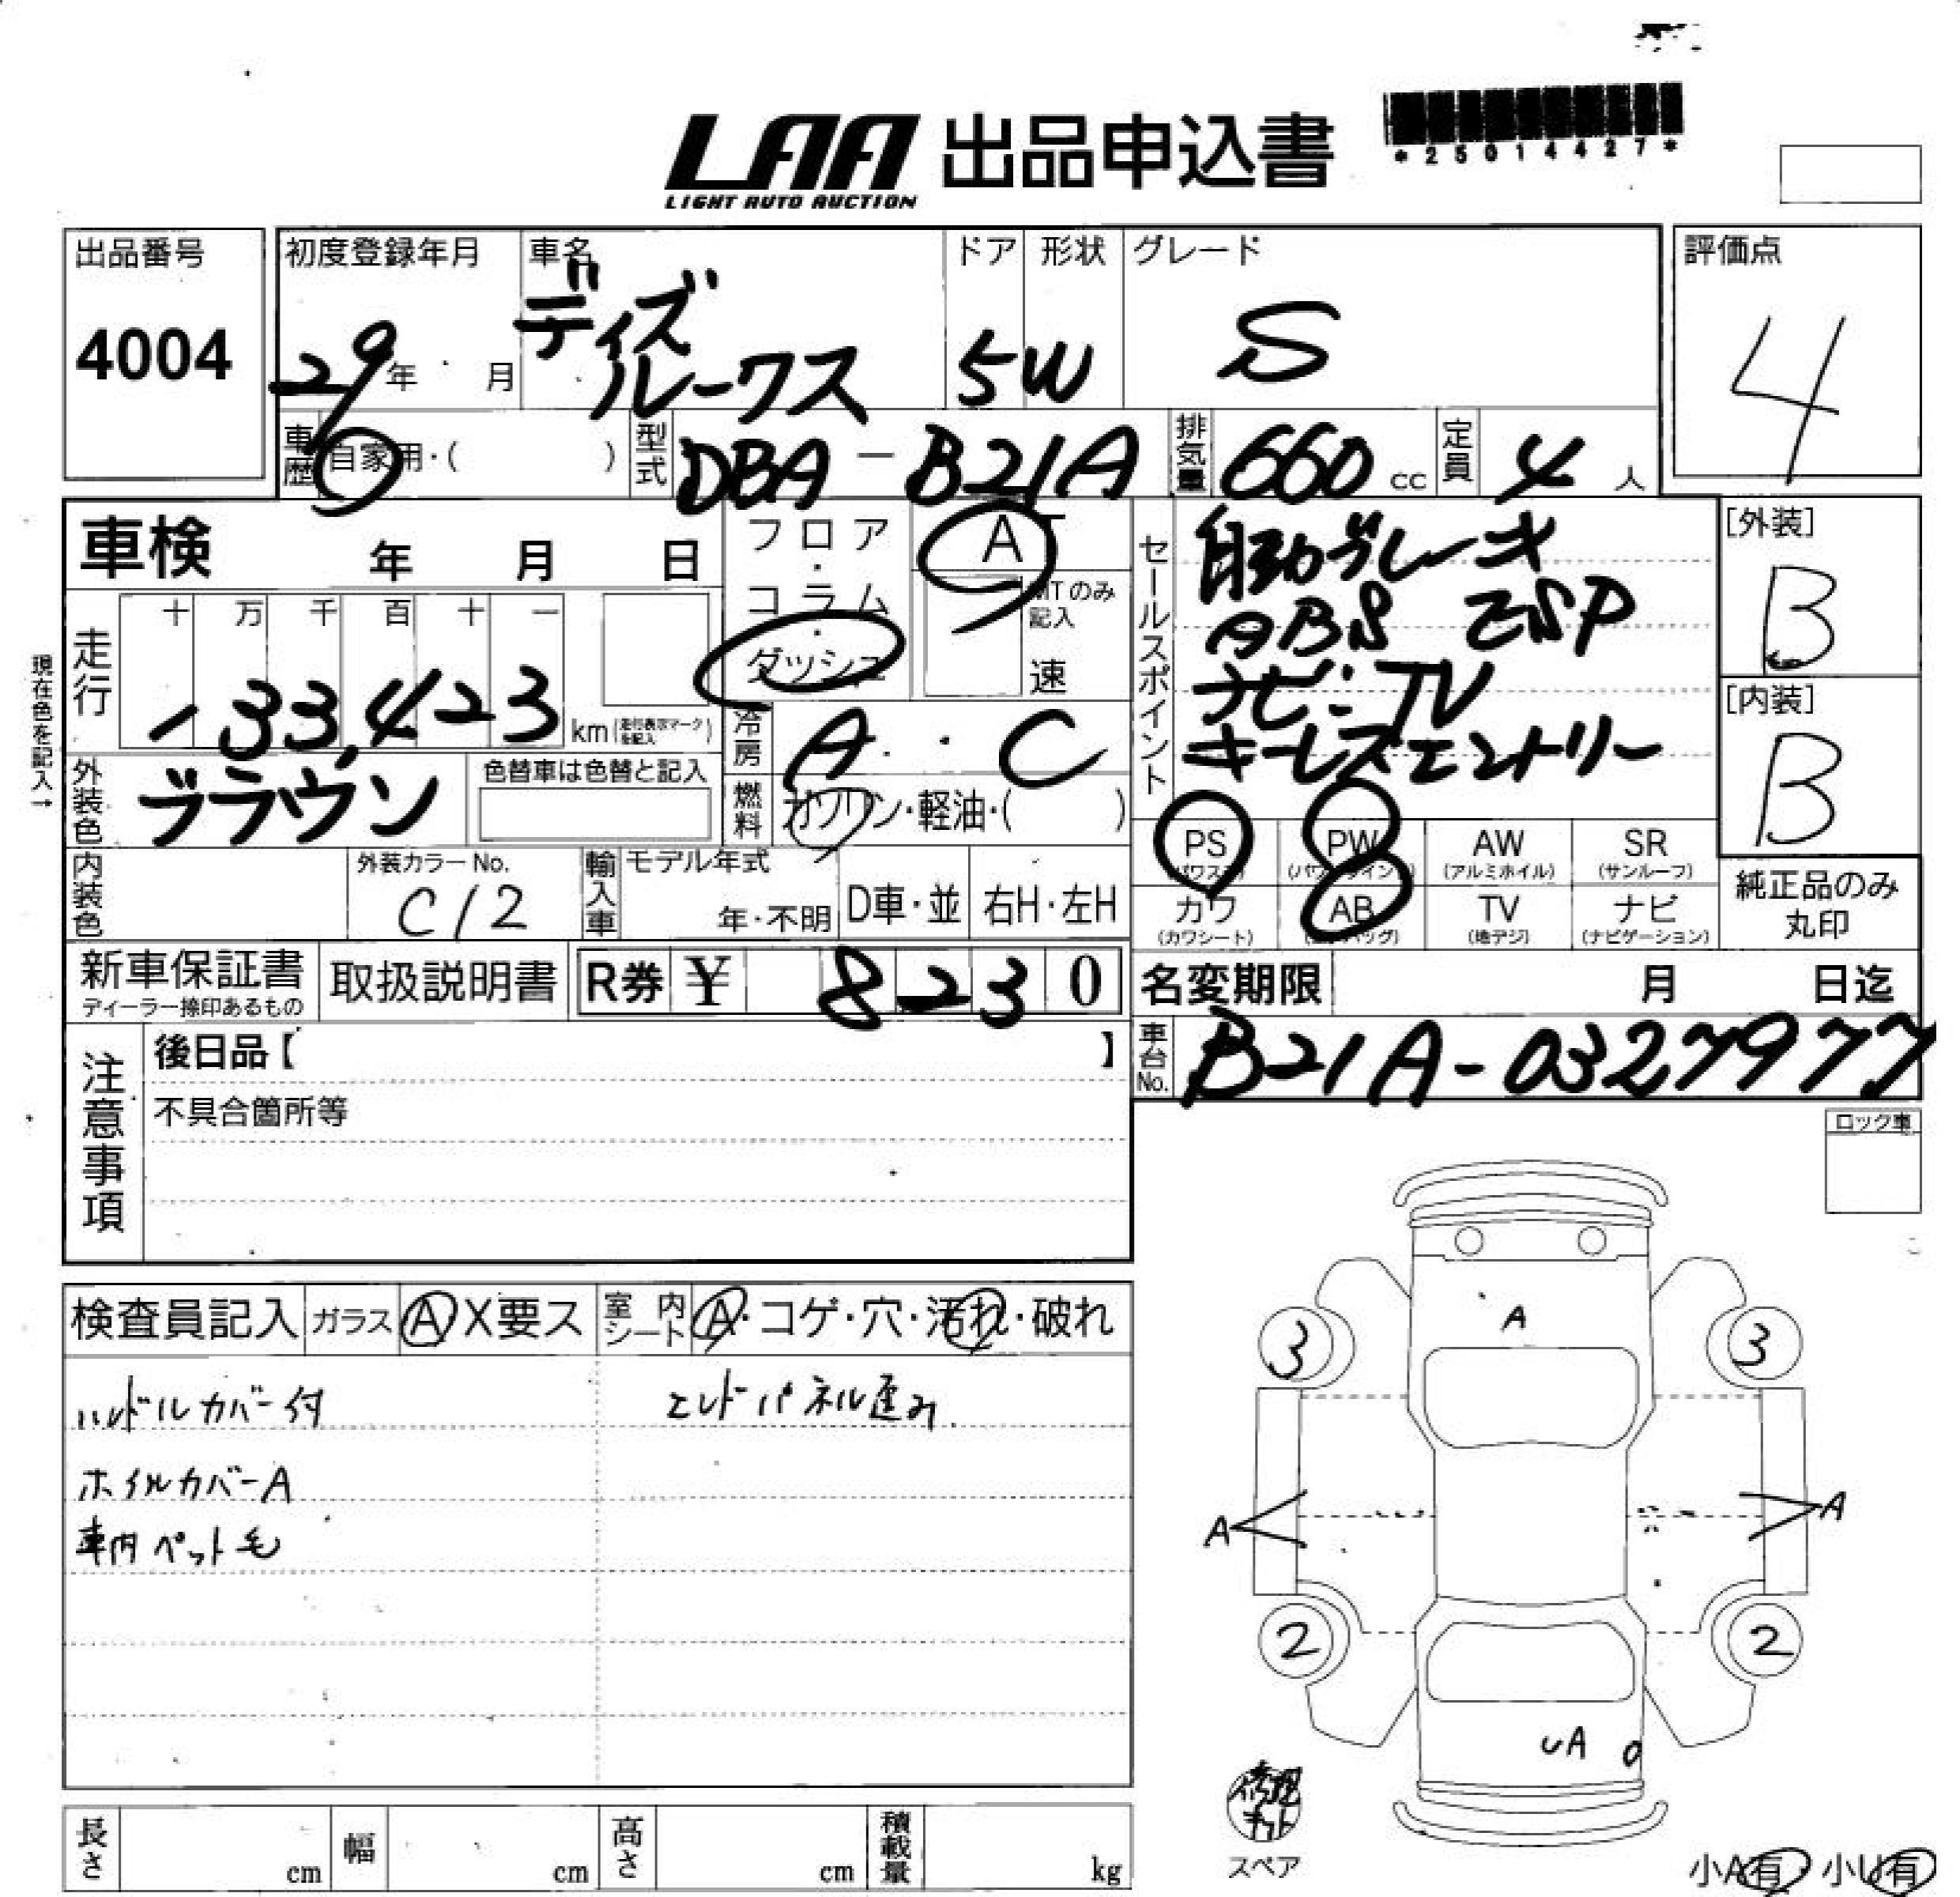 LAA 出品申込書
LIGHT AUTO AUCTION
*25014427*
出品番号
4004
初度登録年月
29年 月
車名
ディズ
ルークス
ドア 形状
5W
グレード
S
評価点
4
車歴 自家用・( )
型式 DBA-B21A
排気量 660 cc
定員 4 人
車検 年 月 日
フロア・コラム・ダッシュ
AT
MTのみ記入
速
セールスポイント
自動ブレーキ
ABS ESP
ナビ・TV
キーレスエントリー
[外装]
B
[内装]
B
現在色を記入→
走行
十 万 千 百 十 一
33,423 km (走行表示マークを記入)
冷房 A・C
外装色 ブラウン
色替車は色替と記入
燃料 ガソリン・軽油・( )
PS (パワステ)
PW (パワーウインド)
AW (アルミホイル)
SR (サンルーフ)
カワ (カワシート)
AB (エアバッグ)
TV (地デジ)
ナビ (ナビゲーション)
純正品のみ
丸印
内装色
外装カラーNo.
C12
輸入車 モデル年式
年・不明
D車・並
右H・左H
新車保証書
ディーラー捺印あるもの
取扱説明書
R券 ¥ 8230
名変期限 月 日迄
車台No. B21A-0327977
注意事項
後日品【 】
不具合箇所等
ロック車
検査員記入 ガラス A X要ス
室内シート A・コゲ・穴・汚れ・破れ
ハンドルカバー付
エンドパネル歪み
ホイルカバーA
車内ペット毛
A
3 3
A A
2 2
UA
修理キット
スペア
小A有・小U有
長さ cm
幅 cm
高さ cm
積載量 kg